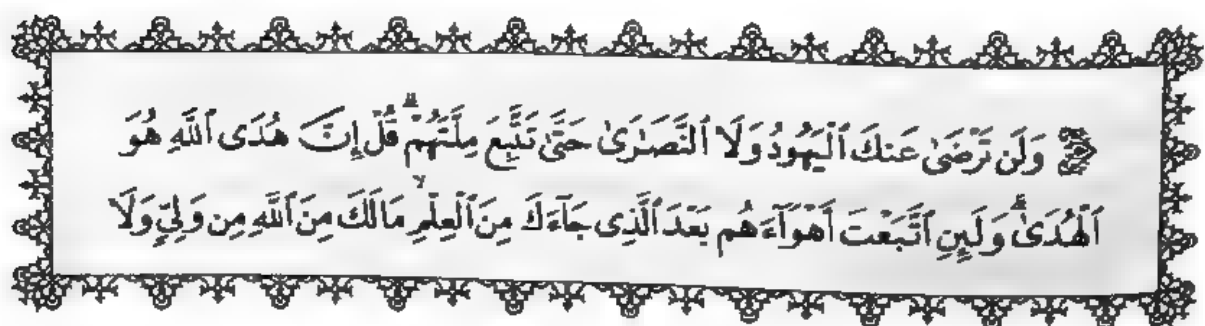 وَلَن تَرْضَىٰ عَنكَ ٱلْيَهُودُ وَلَا ٱلنَّصَـٰرَىٰ حَتَّىٰ تَتَّبِعَ مِلَّتَهُمْ ۗ قُلْ إِنَّ هُدَى ٱللَّهِ هُوَ
ٱلْهُدَىٰ ۗ وَلَئِنِ ٱتَّبَعْتَ أَهْوَآءَهُم بَعْدَ ٱلَّذِى جَآءَكَ مِنَ ٱلْعِلْمِ ۙ مَا لَكَ مِنَ ٱللَّهِ مِن وَلِىٍّ وَلَا